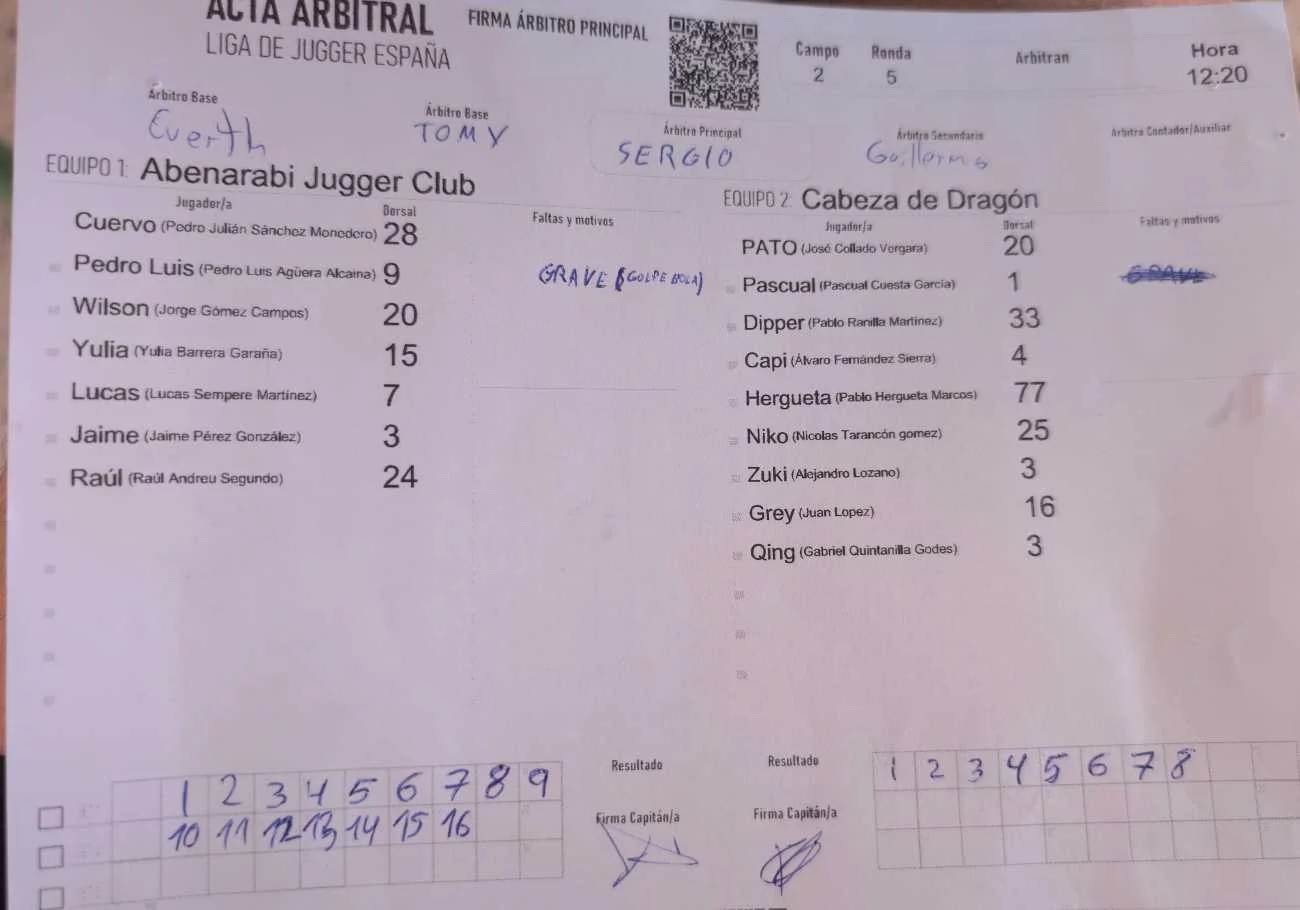 ACTA ARBITRAL
LIGA DE JUGGER ESPAÑA
FIRMA ÁRBITRO PRINCIPAL
Campo Ronda Arbitran Hora
2 5 12:20
Árbitro Base Árbitro Base Árbitro Principal Árbitro Secundario Árbitro Contador/Auxiliar
Everth TOMY SERGIO Guillermo
EQUIPO 1: Abenarabi Jugger Club
Jugador/a Dorsal Faltas y motivos
Cuervo (Pedro Julián Sánchez Monedero) 28
Pedro Luis (Pedro Luis Agüera Alcaina) 9 GRAVE (GOLPE BOLA)
Wilson (Jorge Gómez Campos) 20
Yulia (Yulia Barrera Garaña) 15
Lucas (Lucas Sempere Martínez) 7
Jaime (Jaime Pérez González) 3
Raúl (Raúl Andreu Segundo) 24
EQUIPO 2: Cabeza de Dragón
Jugador/a Dorsal Faltas y motivos
PATO (José Collado Vergara) 20
Pascual (Pascual Cuesta García) 1 GRAVE
Dipper (Pablo Ranilla Martínez) 33
Capi (Álvaro Fernández Sierra) 4
Hergueta (Pablo Hergueta Marcos) 77
Niko (Nicolas Tarancón gomez) 25
Zuki (Alejandro Lozano) 3
Grey (Juan Lopez) 16
Qing (Gabriel Quintanilla Godes) 3
1 2 3 4 5 6 7 8 9
10 11 12 13 14 15 16
Resultado Resultado
Firma Capitán/a Firma Capitán/a
1 2 3 4 5 6 7 8